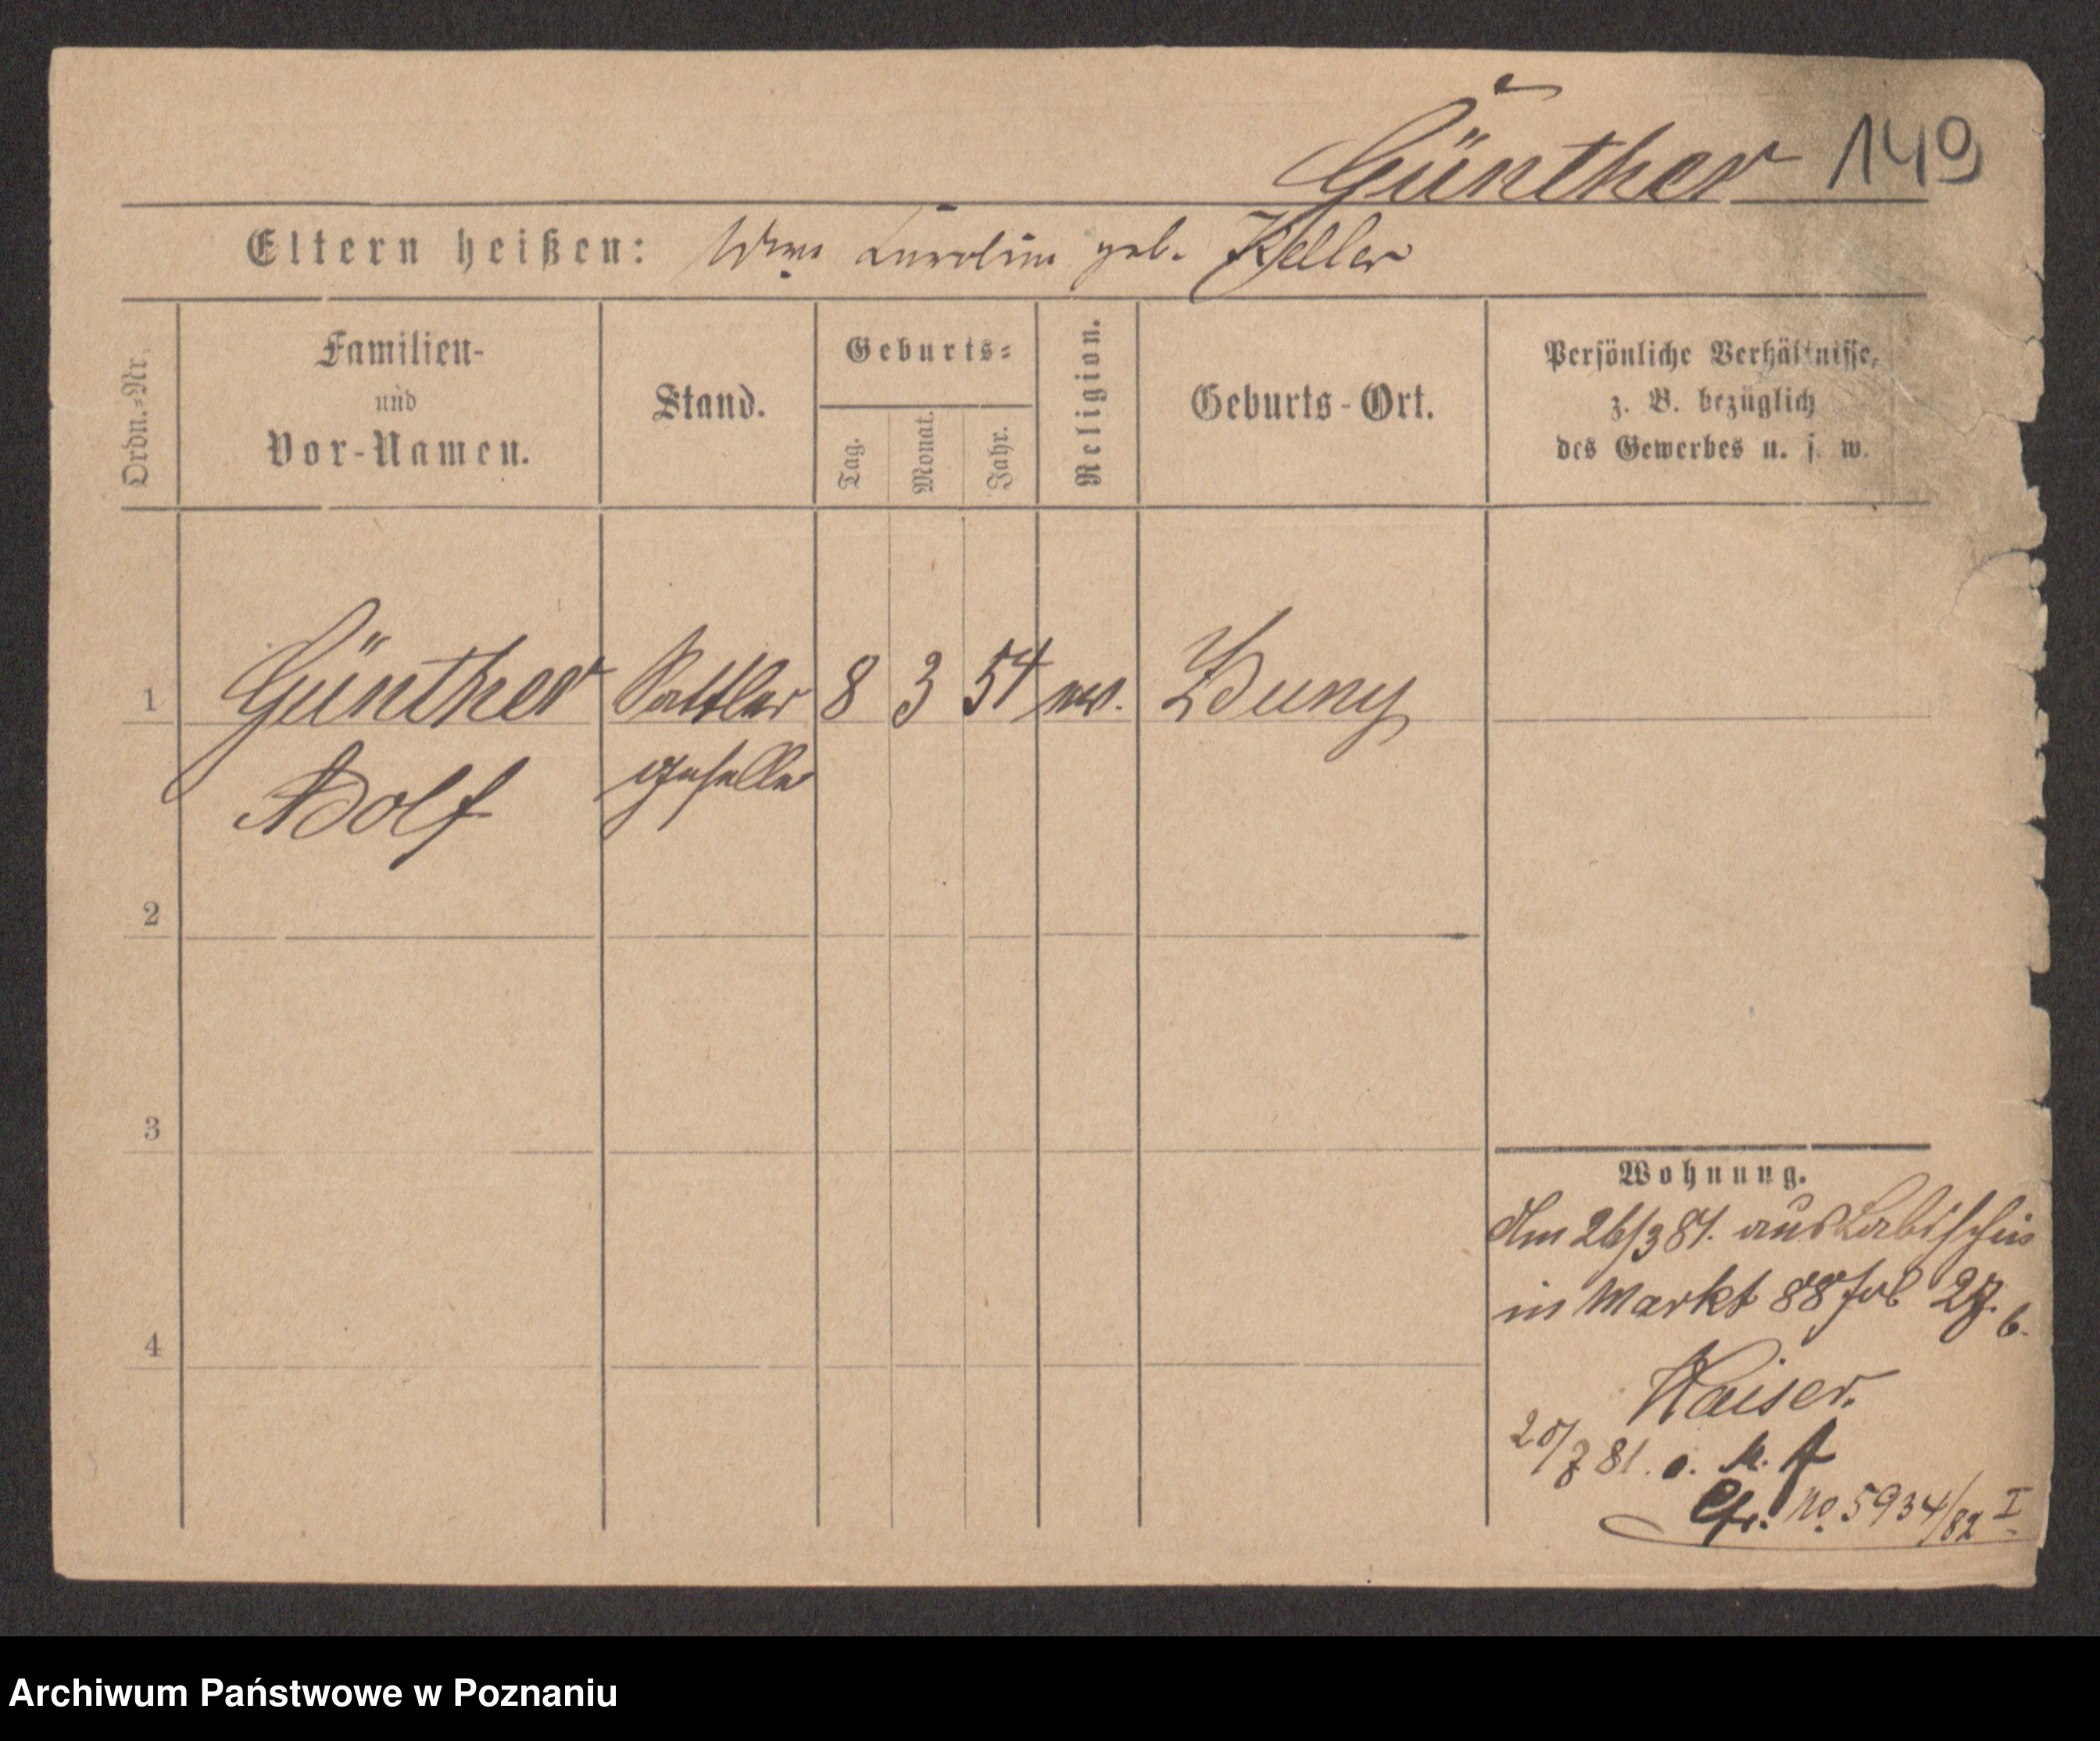 Günther 149
Eltern heißen: Wwe Karoline geb. Keller
Ordn.-Nr.
Familien-
und
Vor-Namen.
Stand.
Geburts-
Tag.
Monat.
Jahr.
Religion.
Geburts-Ort.
Persönliche Verhältnisse,
z. B. bezüglich
des Gewerbes u. s. w.
1 Günther Sattler 8 3 54 ev. Zduny
Adolf geselle
2
3
4
Wohnung.
Am 26/3 81. aus Labischin
in Markt 88 bei
Kaiser.
81.
Cfr. No 5934/82 I
Archiwum Państwowe w Poznaniu